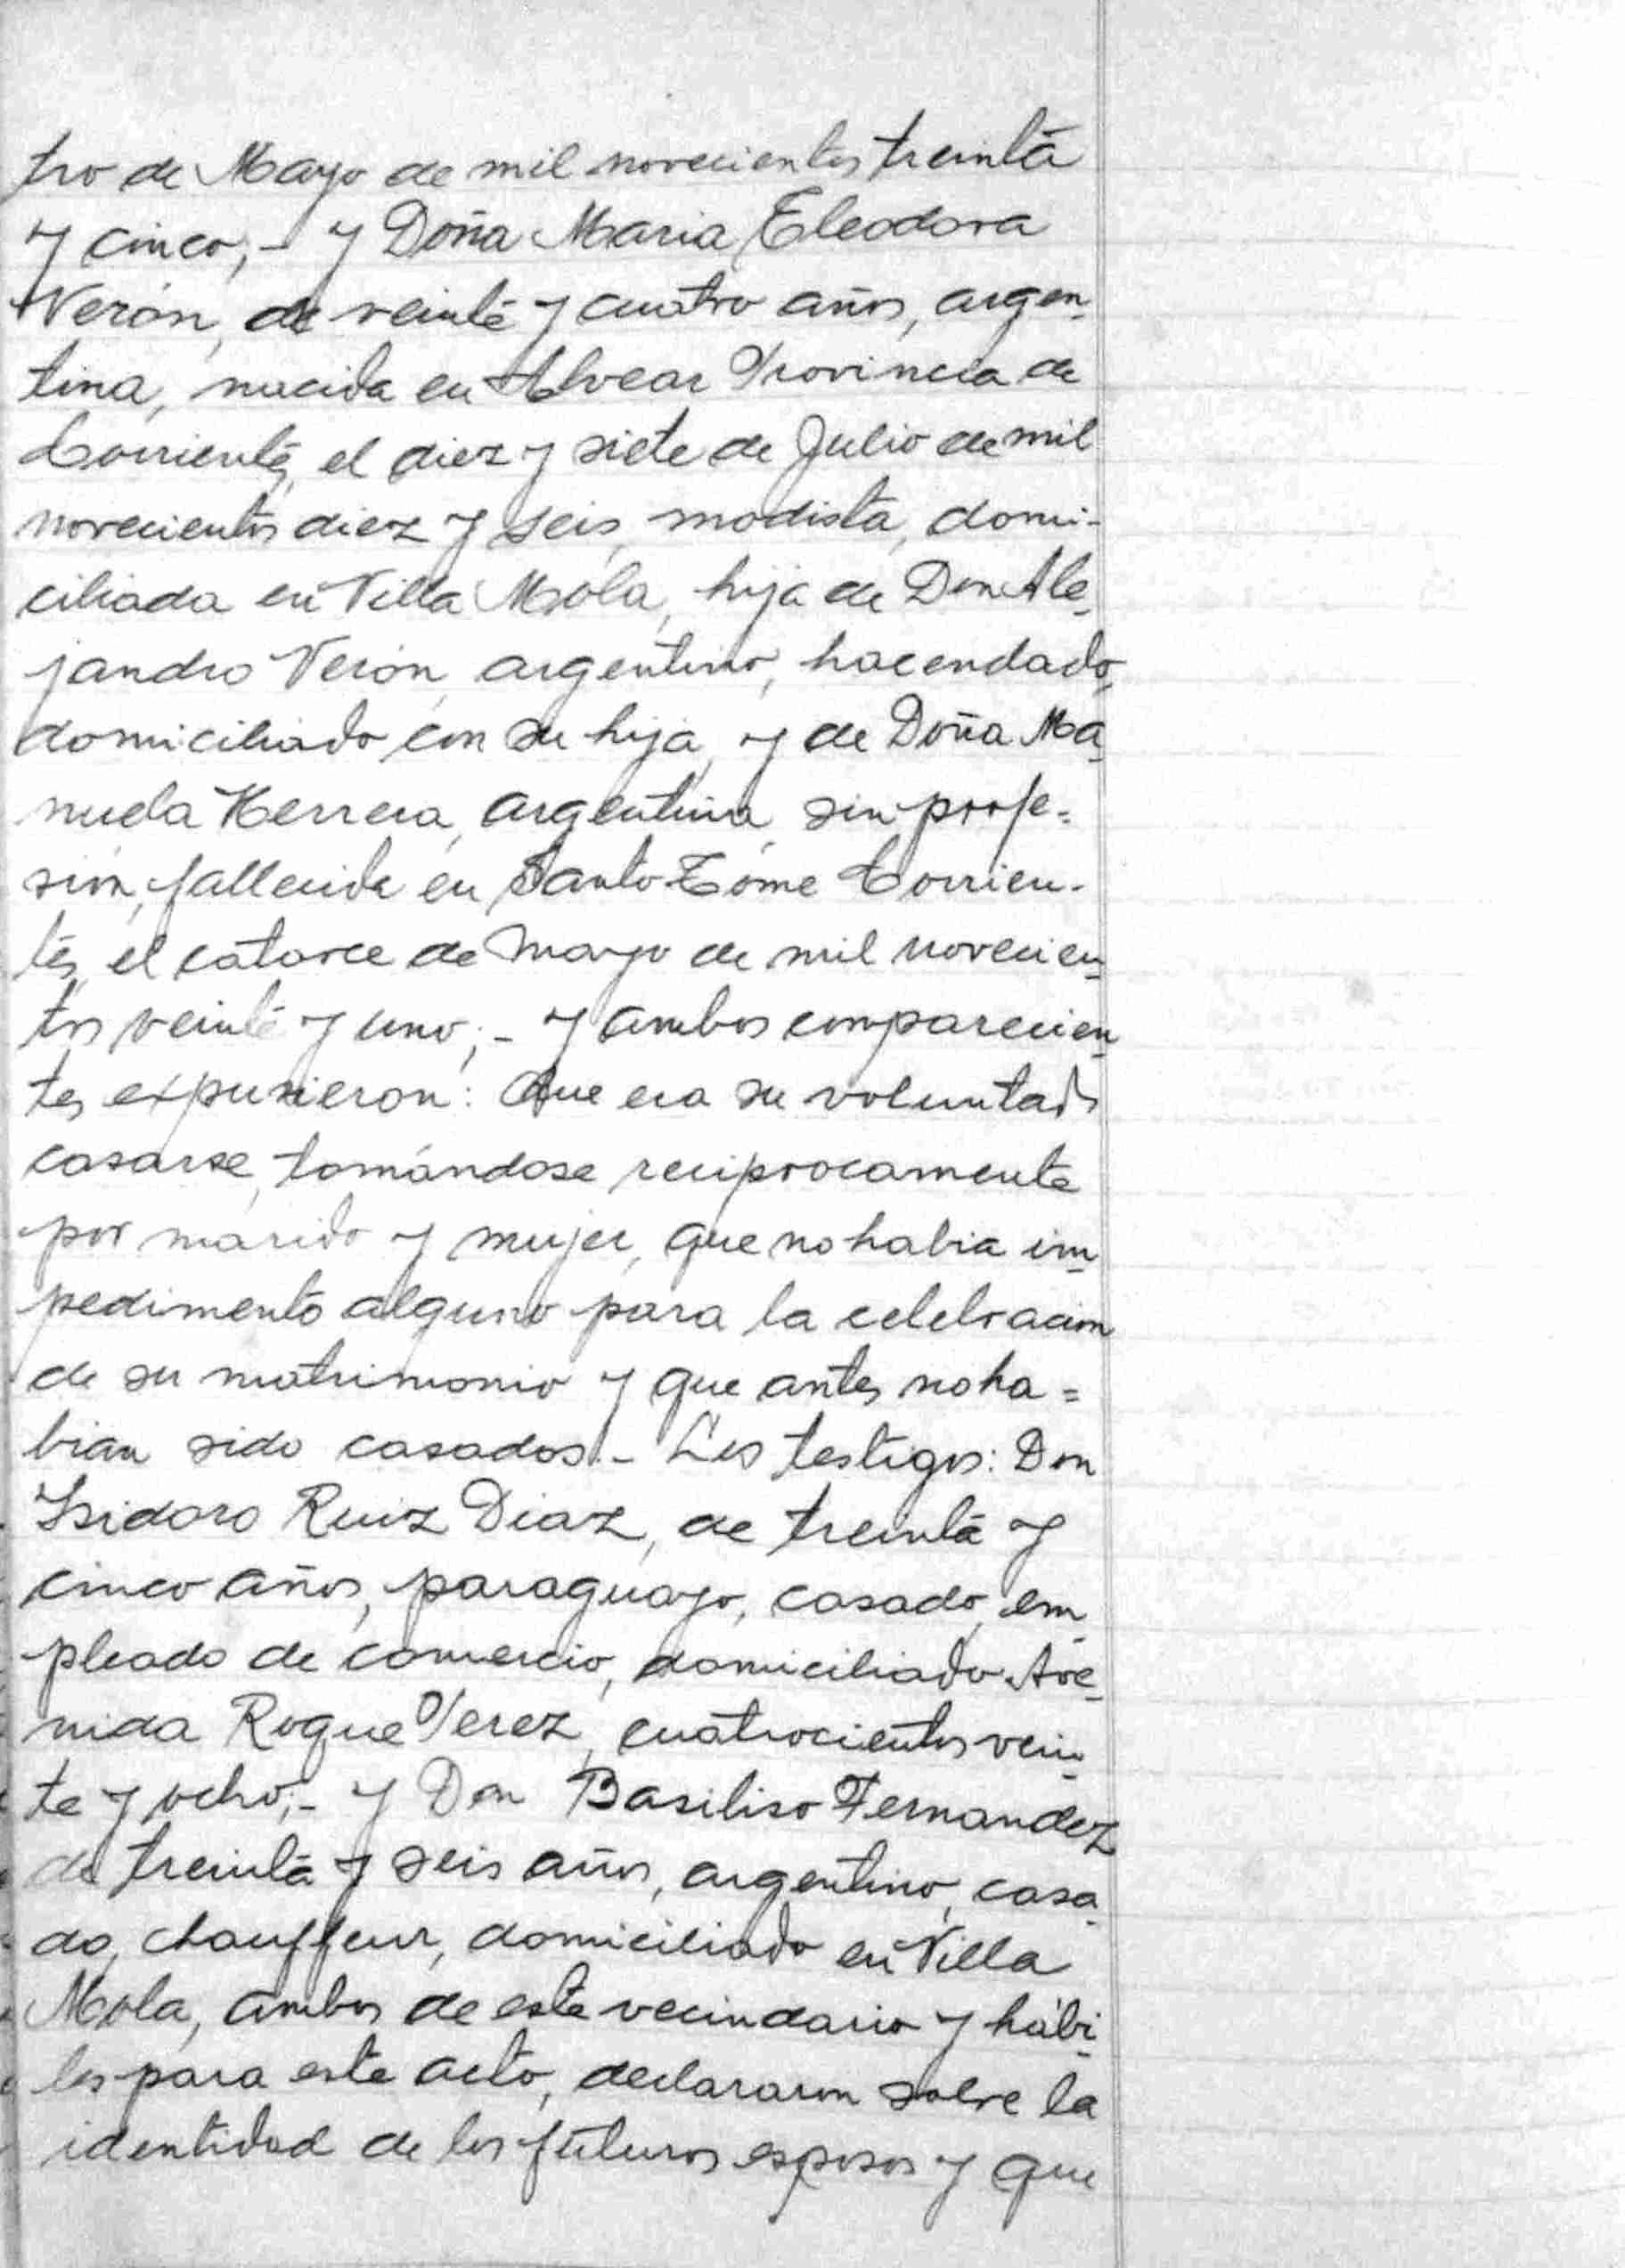 tro de Mayo de mil novecientos treinta
y cinco;- y Doña Maria Eleodora
Verón, de veinte y cuatro años, argen-
tina, nacida en Alvear Provincia de
Corrientes, el diez y siete de Julio de mil
novecientos diez y seis, modista, domi-
ciliada en Villa Mola, hija de Don Ale-
jandro Verón, argentino, hacendado,
domiciliado con su hija, y de Doña Ma-
nuela Herrera, argentina, sin profe=
sión, fallecida en Santo Tóme Corrien-
tes, el catorce de Mayo de mil novecien-
tos veinte y uno;- y ambos comparecien-
tes expusieron: Que era su voluntad
casarse, tomándose reciprocamente
por marido y mujer, que no habia im-
pedimento alguno para la celebracion
de su matrimonio y que antes no ha=
bian sido casados.- Los testigos: Don
Isidoro Ruiz Diaz, de treinta y
cinco años, paraguayo, casado, em-
pleado de comercio, domiciliado Ave-
nida Roque Perez, cuatrocientos vein-
te y ocho;- y Don Basiliso Fernandez
de treinta y seis años, argentino, casa-
do, chauffeur, domiciliado en Villa
Mola, ambos de este vecindario y hábi-
les para este acto, declararon sobre la
identidad de los futuros esposos y que